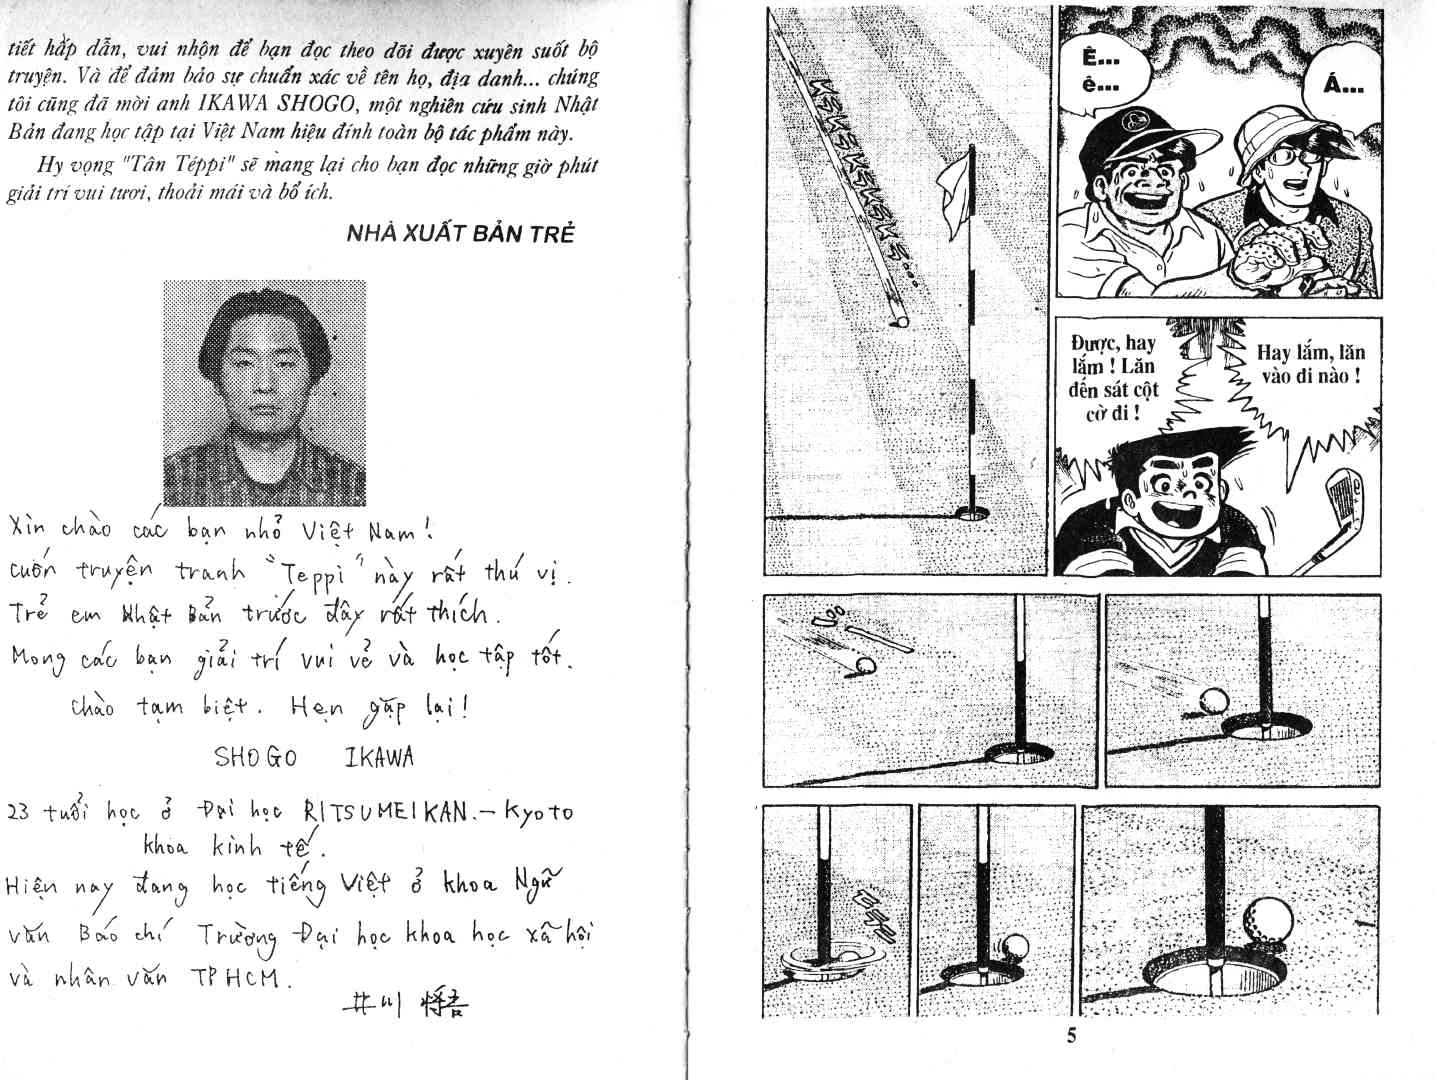 tiết hấp dẫn, vui nhộn để bạn đọc theo dõi được xuyên suốt bộ
truyện. Và để đảm bảo sự chuẩn xác về tên họ, địa danh... chúng
tôi cũng đã mời anh IKAWA SHOGO, một nghiên cứu sinh Nhật
Bản đang học tập tại Việt Nam hiệu đính toàn bộ tác phẩm này.
Hy vọng "Tân Téppi" sẽ mang lại cho bạn đọc những giờ phút
giải trí vui tươi, thoải mái và bổ ích.
NHÀ XUẤT BẢN TRẺ
Xin chào các bạn nhỏ Việt Nam!
Cuốn truyện tranh "Teppi" này rất thú vị.
Trẻ em Nhật Bản trước đây rất thích.
Mong các bạn giải trí vui vẻ và học tập tốt.
chào tạm biệt. Hẹn gặp lại!
SHOGO IKAWA
23 tuổi học ở Đại học RITSUMEIKAN.– Kyoto
khoa kinh tế.
Hiện nay đang học tiếng Việt ở khoa Ngữ
văn Báo chí Trường Đại học khoa học xã hội
và nhân văn TPHCM.
井川 将吾
Ê...
ê...
Á...
Được, hay
lắm ! Lăn
đến sát cột
cờ đi !
Hay lắm, lăn
vào đi nào !
5